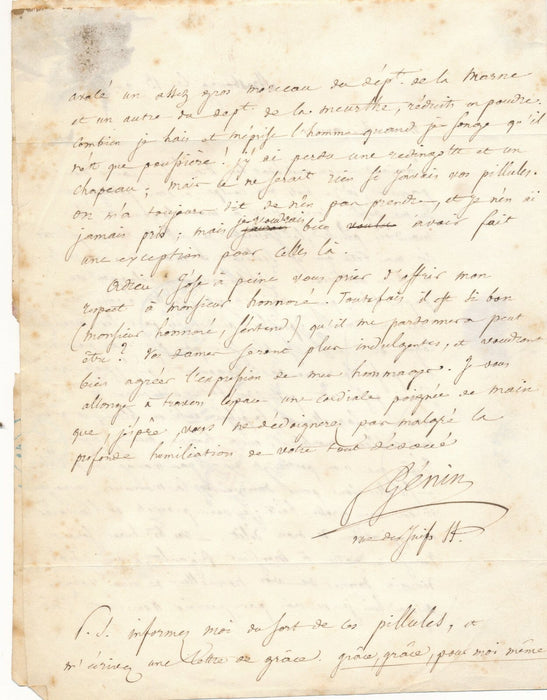 avalé un assez gros morceau du dépt. de la Marne
et un autre du dépt. de la meurthe, réduits en poudre.
Combien je hais et méprise l'homme quand je songe qu'il
n'est que poussière! j'y ai perdu une redingotte et un
chapeau; mais ce ne serait rien si j'avais vos pillules.
On m'a toujours dit de n'en pas prendre, et je n'en ai
jamais pris; mais je voudrais bien avoir fait
une exception pour celles là.
Adieu, j'ose à peine vous prier d'offrir mon
respect à monsieur honnoré. Toutefois il est si bon
(monsieur honnoré, s'entend) qu'il me pardonnera peut
être? Vos dames seront plus indulgentes, et voudront
bien agréer l'expression de mes hommages. Je vous
allonge à travers l'espace une cordiale poignée de main
que, j'espère, vous ne dédaignerez pas malgré la
profonde humiliation de votre tout dévoué
Génin
rue des
P.S. informez moi du sort de ces pillules, et
m'écrivez une lettre de grâce. grâce, grâce, pour moi même